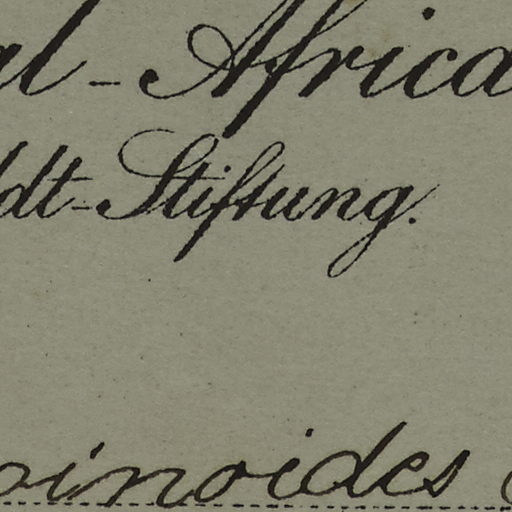 al-Africa
ldt-Stiftung.
oinoides